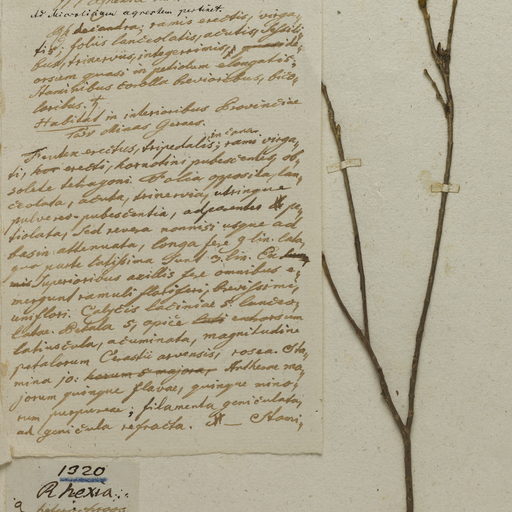 Ad Microlicium agrestem pertinet.
decandra; ramis erectis, virga-
tis; foliis lanceolatis, acutis, sessili-
bus, trinerviis, integerrimis,
orsum quasi in petiolum elongatis;
staminibus corolla brevioribus, bico-
loribus. ♄
Habitat in interioribus Provinciae
Minas Geraes.
Frutex erectus, tripedalis; rami virga-
ti, erecti, hornotini pubescentes, ob-
solete tetragoni. Folia opposita, lan-
ceolata, acuta, trinervia, utrinque
pulvereo-pubescentia, adparenter pe-
tiolata, sed revera nonnisi usque ad
basin attenuata, longa fere 9 lin. lata
qua parte latissima sunt 3 lin. Ex
superioribus axillis fere omnibus e-
mergunt ramuli floriferi, brevissimi,
uniflori. Calycis laciniae 5, lanceo-
latae. Petala 5, apice extrorsum
latiuscula, acuminata, magnitudine
petalorum Cerastii arvensis, rosea. Sta-
mina 10: harum 5 majora Antherae ma-
jorum quinque flavae, quinque mino-
rum purpureae; filamenta geniculata,
ad genicula refracta. — Stami-
1920
Rhexia